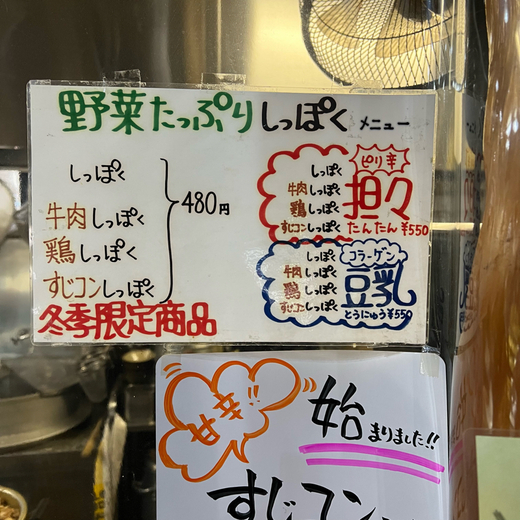 野菜たっぷりしっぽくメニュー
しっぽく
牛肉しっぽく
鶏しっぽく
すじコンしっぽく
480円
冬季限定商品
ピリ辛
しっぽく
牛肉しっぽく
鶏しっぽく
すじコンしっぽく
担々
たんたん¥550
コラーゲン
しっぽく
牛肉しっぽく
鶏しっぽく
すじコンしっぽく
豆乳
とうにゅう¥550
甘辛!!
始まりました!!
すじコン